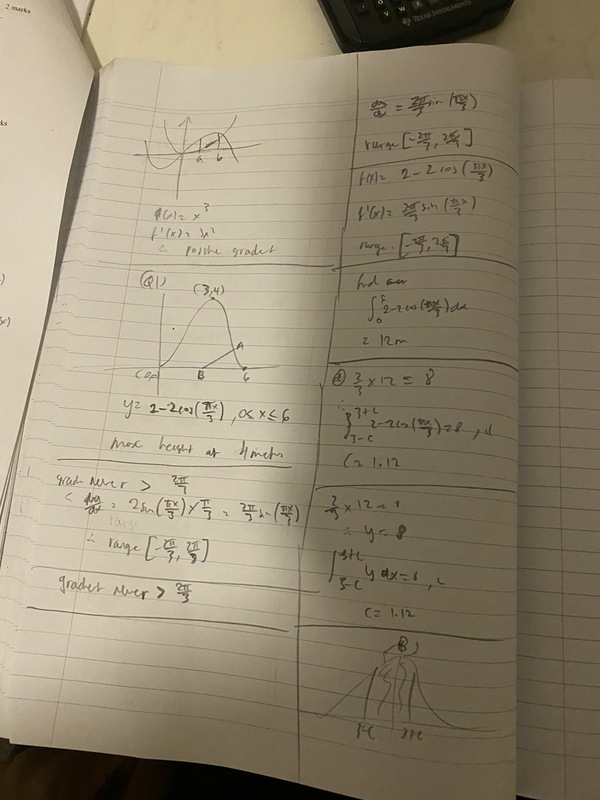 2 marks
TEXAS INSTRUMENTS
a b
f(x) = x³
f'(x) = 3x²
∴ positive gradient
(Q1)
(3,4)
A
B
6
y = 2-2cos(πx/3), 0≤x≤6
max height of 4 metres
gradient never > 2π/3
dy/dx = 2sin(πx/3) × π/3 = 2π/3 sin(πx/3)
∴ range [-2π/3, 2π/3]
gradient never > 2π/3
dy/dx = 2π/3 sin(πx/3)
range [-2π/3, 2π/3]
f(x) = 2-2cos(πx/3)
f'(x) = 2π/3 sin(πx/3)
range. [-2π/3, 2π/3]
find
∫ 2-2cos(πx/3) dx
= 12m
2/3 × 12 = 8
∴ ∫ 3+c 3-c 2-2cos(πx/3) = 8
C = 1.12
2/3 × 12 =
∴ y = 8
∫ 3+c 3-c y dx =
C = 1.12
B
3-c 3+c